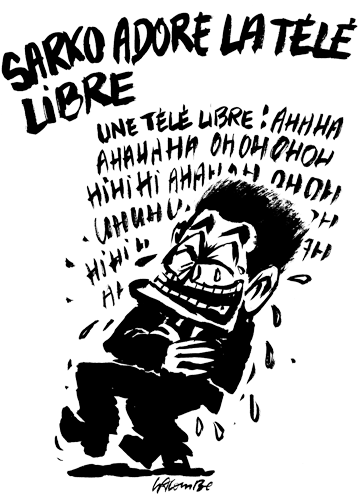 SARKO ADORE LA TÉLÉ
LIBRE
UNE TÉLÉ LIBRE ! AHHHA
AHAHHHA OHOHOHOH
HIHIHI AHAHAH OHOH
UHUHU
HIHI
HIHI AH
HA
LACOMBE